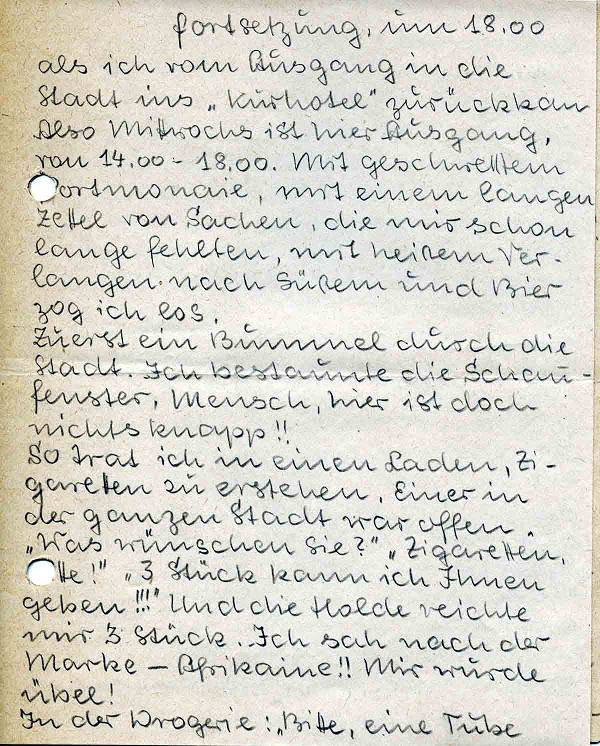 fortsetzung, um 18.00
als ich vom Ausgang in die
Stadt ins „Kurhotel" zurückkam
Also Mittwochs ist hier Ausgang,
von 14.00 - 18.00. Mit geschwelltem
ortmonaie, mit einem langen
Zettel von Sachen, die mir schon
lange fehlten, mit heißem Ver-
langen nach Süßem und Bier
zog ich los.
Zuerst ein Bummel durch die
Stadt. Ich bestaunte die Schau-
fenster, Mensch, hier ist doch
nichts knapp!!
So trat ich in einen Laden, Zi-
garetten zu erstehen. Einer in
der ganzen Stadt war offen.
„Was wünschen Sie?" „Zigaretten,
tte!" „3 Stück kann ich Ihnen
geben!!!" Und die Holde reichte
mir 3 Stück. Ich sah nach der
Marke – Afrikaine!! Mir wurde
übel!
In der Drogerie: „Bitte, eine Tube